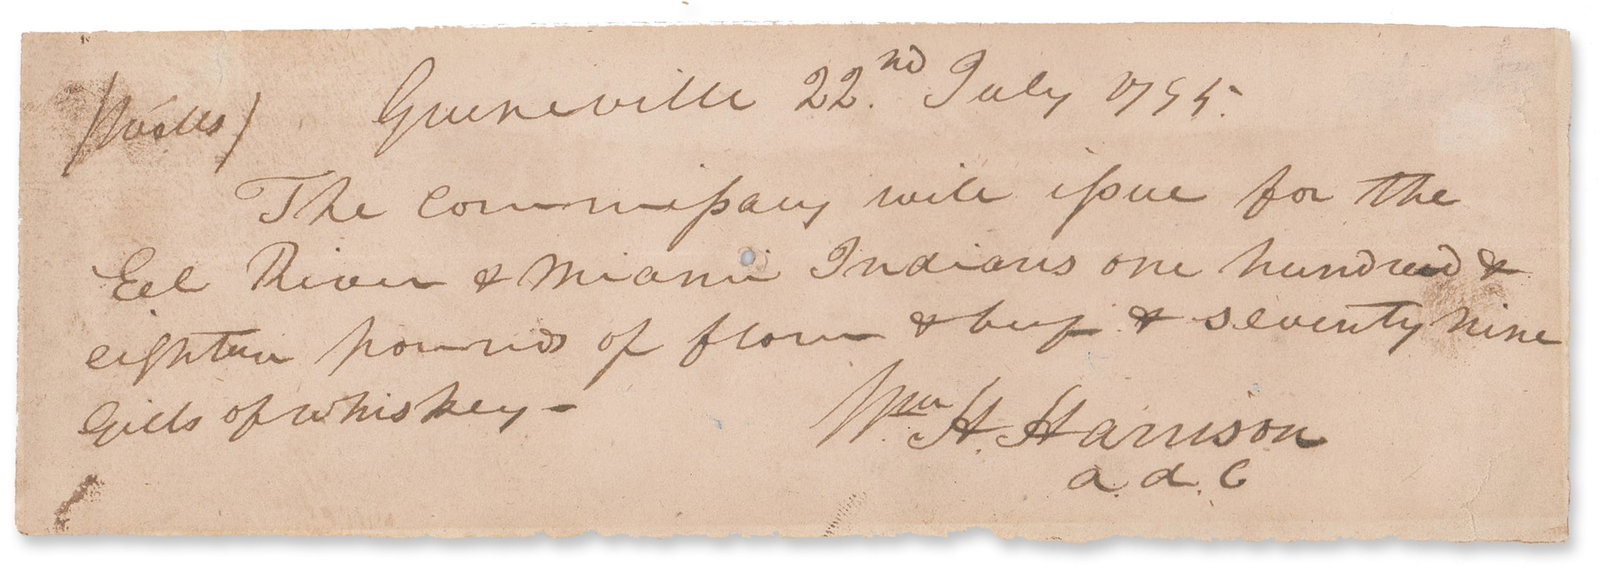 Greeneville 22.nd July 1795.
The Commissary will issue for the
Eel River & Miami Indians one hundred &
eighteen pounds of flour & beef & seventy nine
Gills of whiskey –
Wm H. Harrison
a. d. C